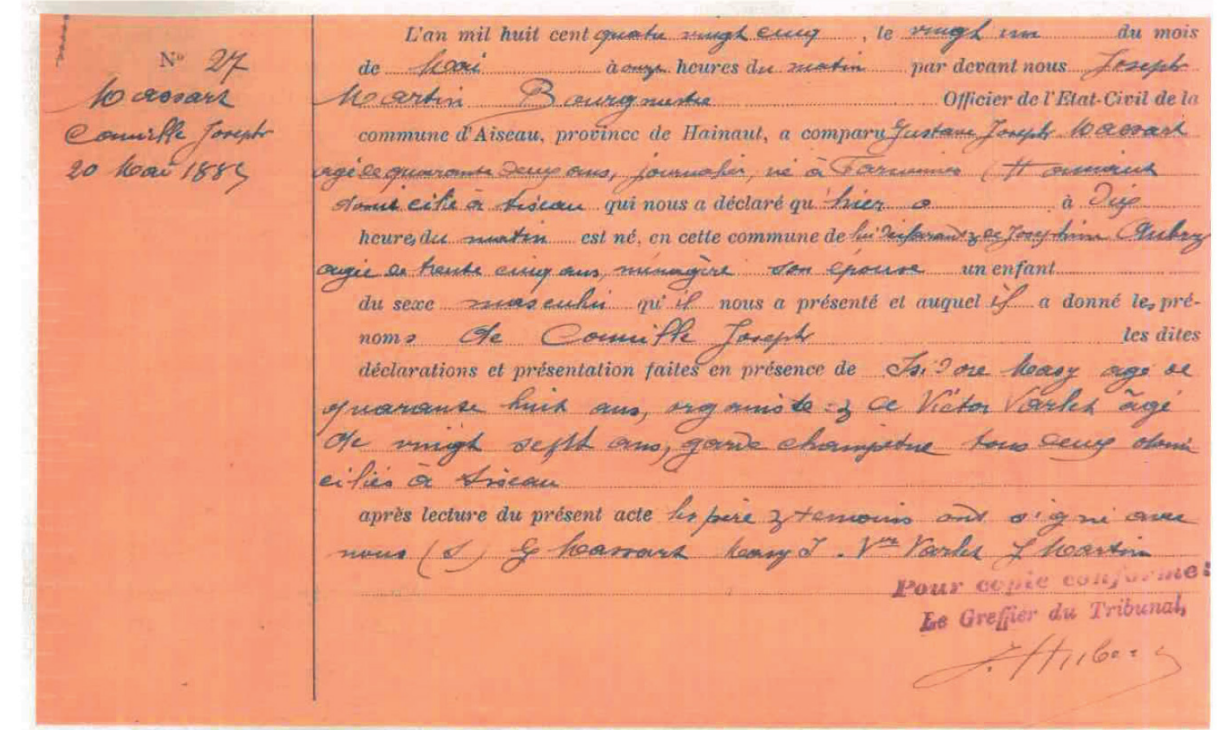 N° 27
Massart
Camille Joseph
20 Mai 1885
L'an mil huit cent quatre vingt cinq, le vingt un du mois
de Mai à onze heures du matin par devant nous Joseph
Martin Bourgmestre Officier de l'Etat-Civil de la
commune d'Aiseau, province de Hainaut, a comparu Gustave Joseph Massart
agé de quarante deux ans, journalier, né à Farciennes (Hainaut
domicilié à Aiseau qui nous a déclaré qu'hier à Dix
heures du matin est né, en cette commune de lui déclarant & de Joséphine Aubry
agée de trente cinq ans, ménagère son épouse un enfant
du sexe masculin qu'il nous a présenté et auquel il a donné les pré-
noms de Camille Joseph les dites
déclarations et présentation faites en présence de Isidore Masy agé de
quarante huit ans, organiste & de Victor Varlet âgé
de vingt sept ans, garde champêtre tous deux domi
ciliés à Aiseau
après lecture du présent acte les père & temoins ont signé avec
nous (S) G Massart Masy I. Vor Varlet J Martin
Pour copie conforme:
Le Greffier du Tribunal,